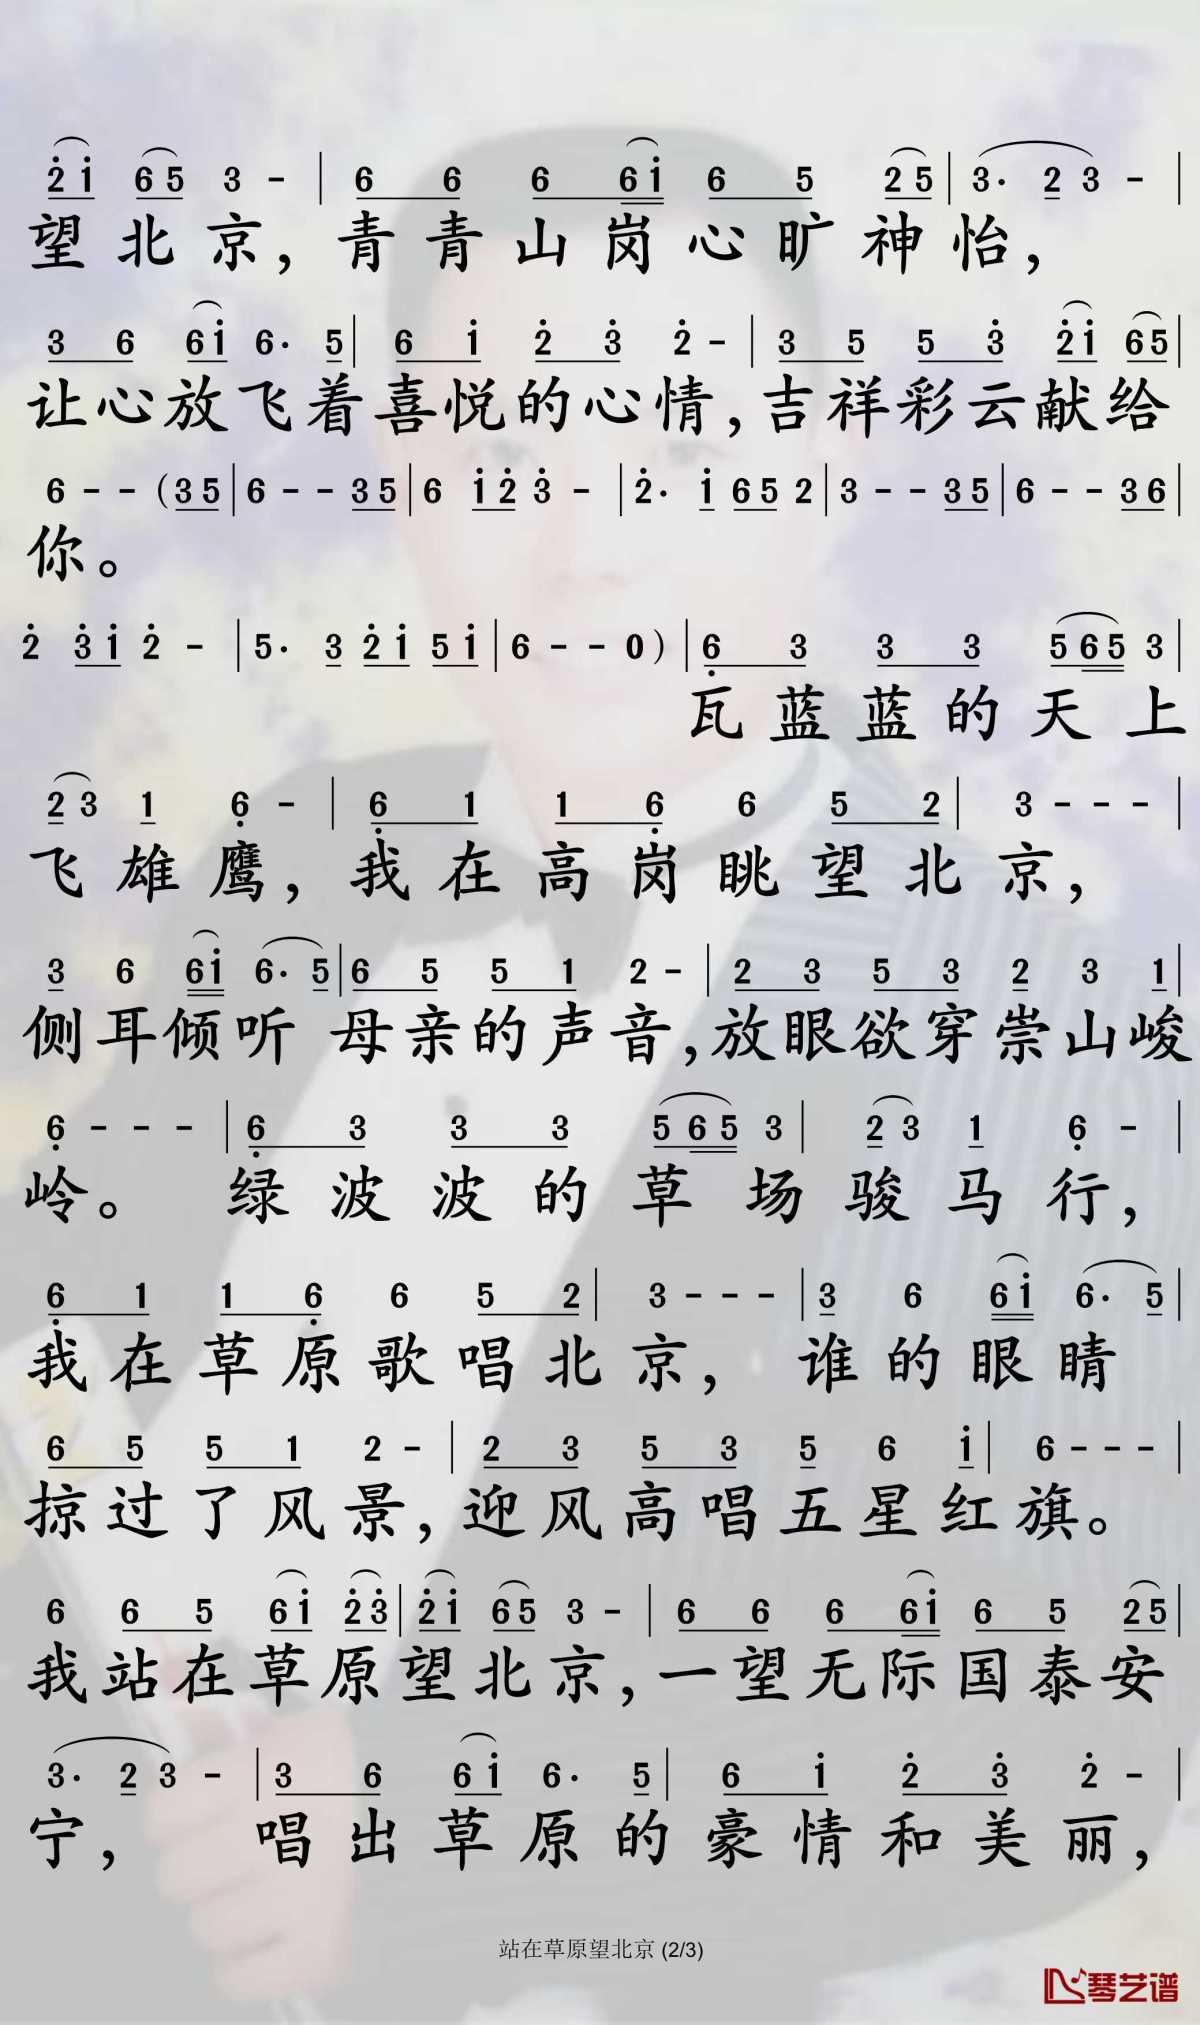 2̇ 1̇ 6 5 3 - | 6 6 6 6 1̇ 6 5 2 5 | 3· 2 3 - |
望北京，青青山岗心旷神怡，
3 6 6 1̇ 6· 5 | 6 1̇ 2̇ 3̇ 2̇ - | 3 5 5 3̇ 2̇ 1̇ 6 5 |
让心放飞着喜悦的心情，吉祥彩云献给
6 - - (3 5 | 6 - - 3 5 | 6 1̇ 2̇ 3̇ - | 2̇· 1̇ 6 5 2 | 3 - - 3 5 | 6 - - 3 6 |
你。
2̇ 3̇ 1̇ 2̇ - | 5· 3 2̇ 1̇ 5 1̇ | 6 - - 0) | 6̣ 3 3 3 5 6 5 3 |
瓦蓝蓝的天上
2 3 1 6̣ - | 6̣ 1 1 6̣ 6 5 2 | 3 - - - |
飞雄鹰，我在高岗眺望北京，
3 6 6 1̇ 6· 5 | 6 5 5 1 2 - | 2 3 5 3 2 3 1 |
侧耳倾听 母亲的声音，放眼欲穿崇山峻
6̣ - - - | 6̣ 3 3 3 5 6 5 3 | 2 3 1 6̣ - |
岭。 绿波波的草场骏马行，
6̣ 1 1 6̣ 6 5 2 | 3 - - - | 3 6 6 1̇ 6· 5 |
我在草原歌唱北京，谁的眼睛
6 5 5 1 2 - | 2 3 5 3 5 6 1̇ | 6 - - - |
掠过了风景，迎风高唱五星红旗。
6 6 5 6 1̇ 2̇ 3̇ | 2̇ 1̇ 6 5 3 - | 6 6 6 6 1̇ 6 5 2 5 |
我站在草原望北京，一望无际国泰安
3· 2 3 - | 3 6 6 1̇ 6· 5 | 6 1̇ 2̇ 3̇ 2̇ - |
宁， 唱出草原的豪情和美丽，
站在草原望北京 (2/3)
琴艺谱